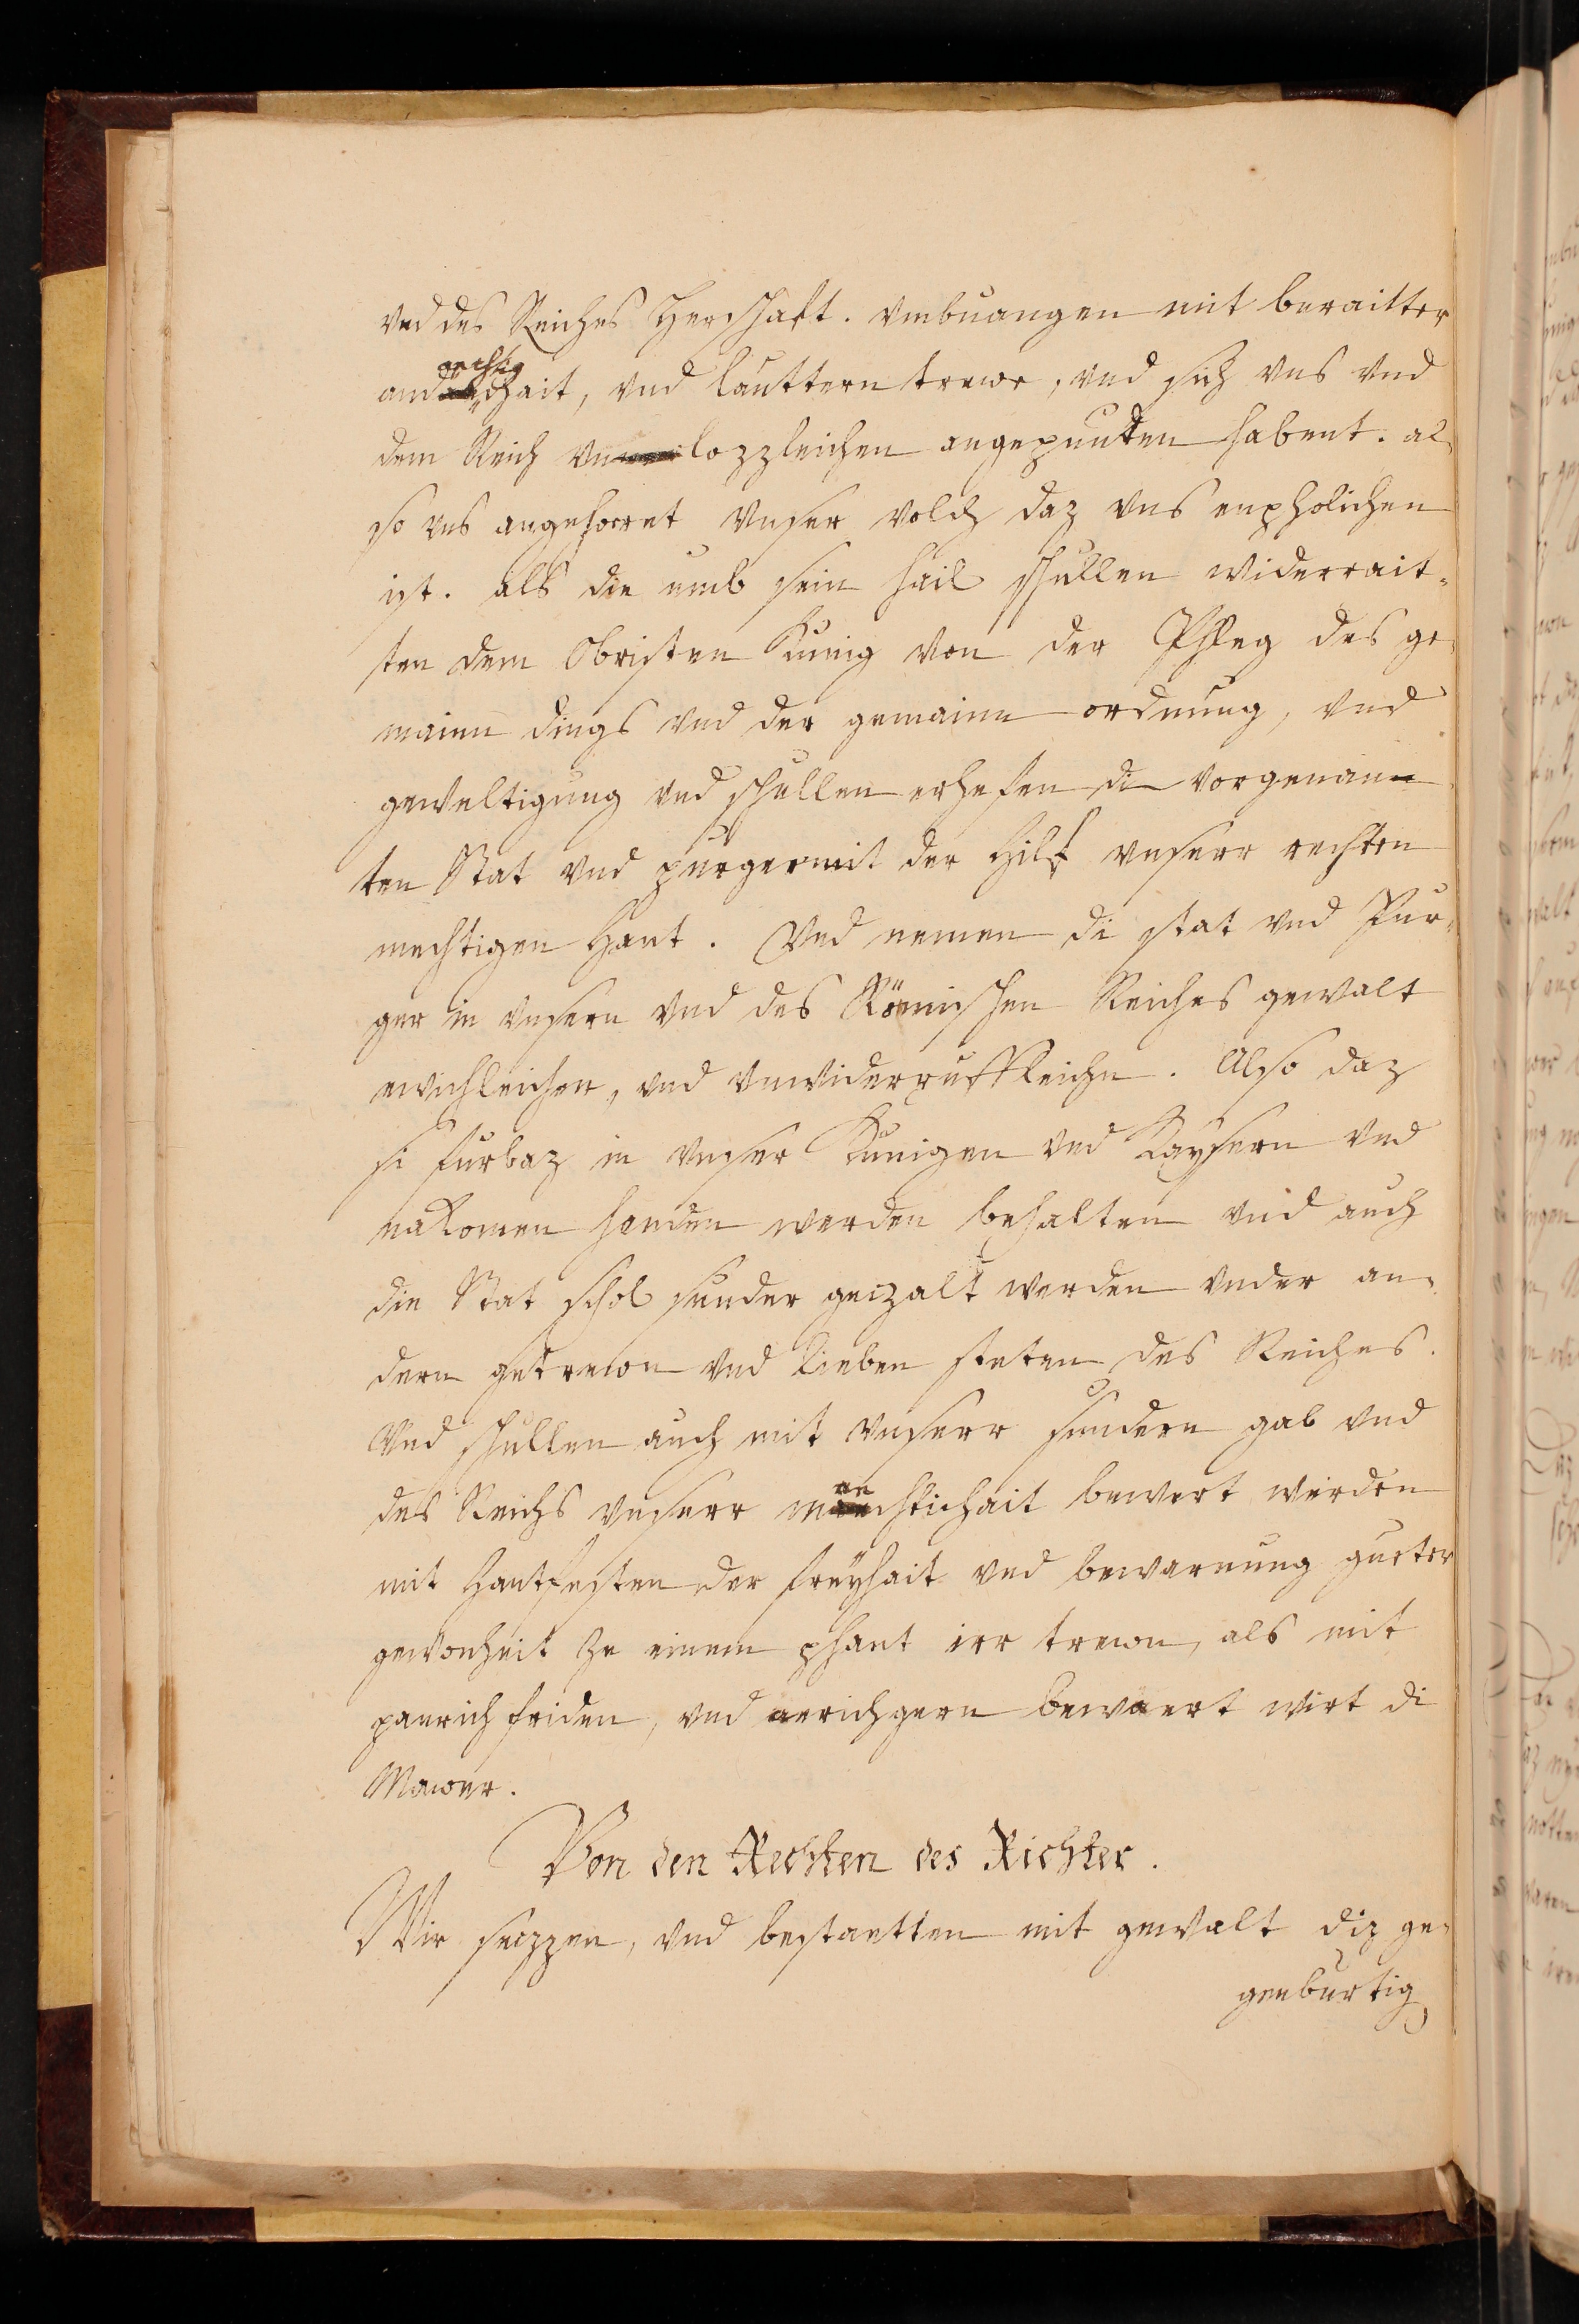 vnd des Reiches Herschaft. vmbuangen mit beraitter
aechtig
and chait, vnd lauttern trewe, vnd sich vns vnd
dem Reich vn lozzleichen angepunten habent. al-
so vns angehorret vnser volch daz vns enpholichen
ist. als die umb sein hail schullen widerrait-
ten dem Obristen Kunig von der Pfleg des ge-
mainn dings vnd der gemainn ordnung, vnd
geweltigung vnd schullen erhefen di vorgenann
ten Stat vnd purger mit der hilf vnserr rechten
mechtigen Hant. Vnd nemen di stat vnd Pur-
ger in vnsern vnd des Römischen Reiches gewalt
ewichleichen, vnd vnwiderruffleichn. Also daz
si furbaz in vnser Kunigen vnd Kaysern vnd
nakomen henden werden behalten vnd auch
die Stat schol sunder geczalt werden vnder an-
dern getrewn vnd lieben steten des Reiches.
Vnd schullen auch mit vnserr sundern gab vnd
des Reichs vnserr maechtichait bewert werden
mit Hantfesten der freyhait vnd bewarnung gueter
gewonheit ze einem phant irr trewn, als mit
paurich friden, vnd aerichgern bewaert wirt di
Mawer.
Von den Rechten des Richter.
Wir seczzen, vnd bestaetten mit gewalt diz ge-
genburtig